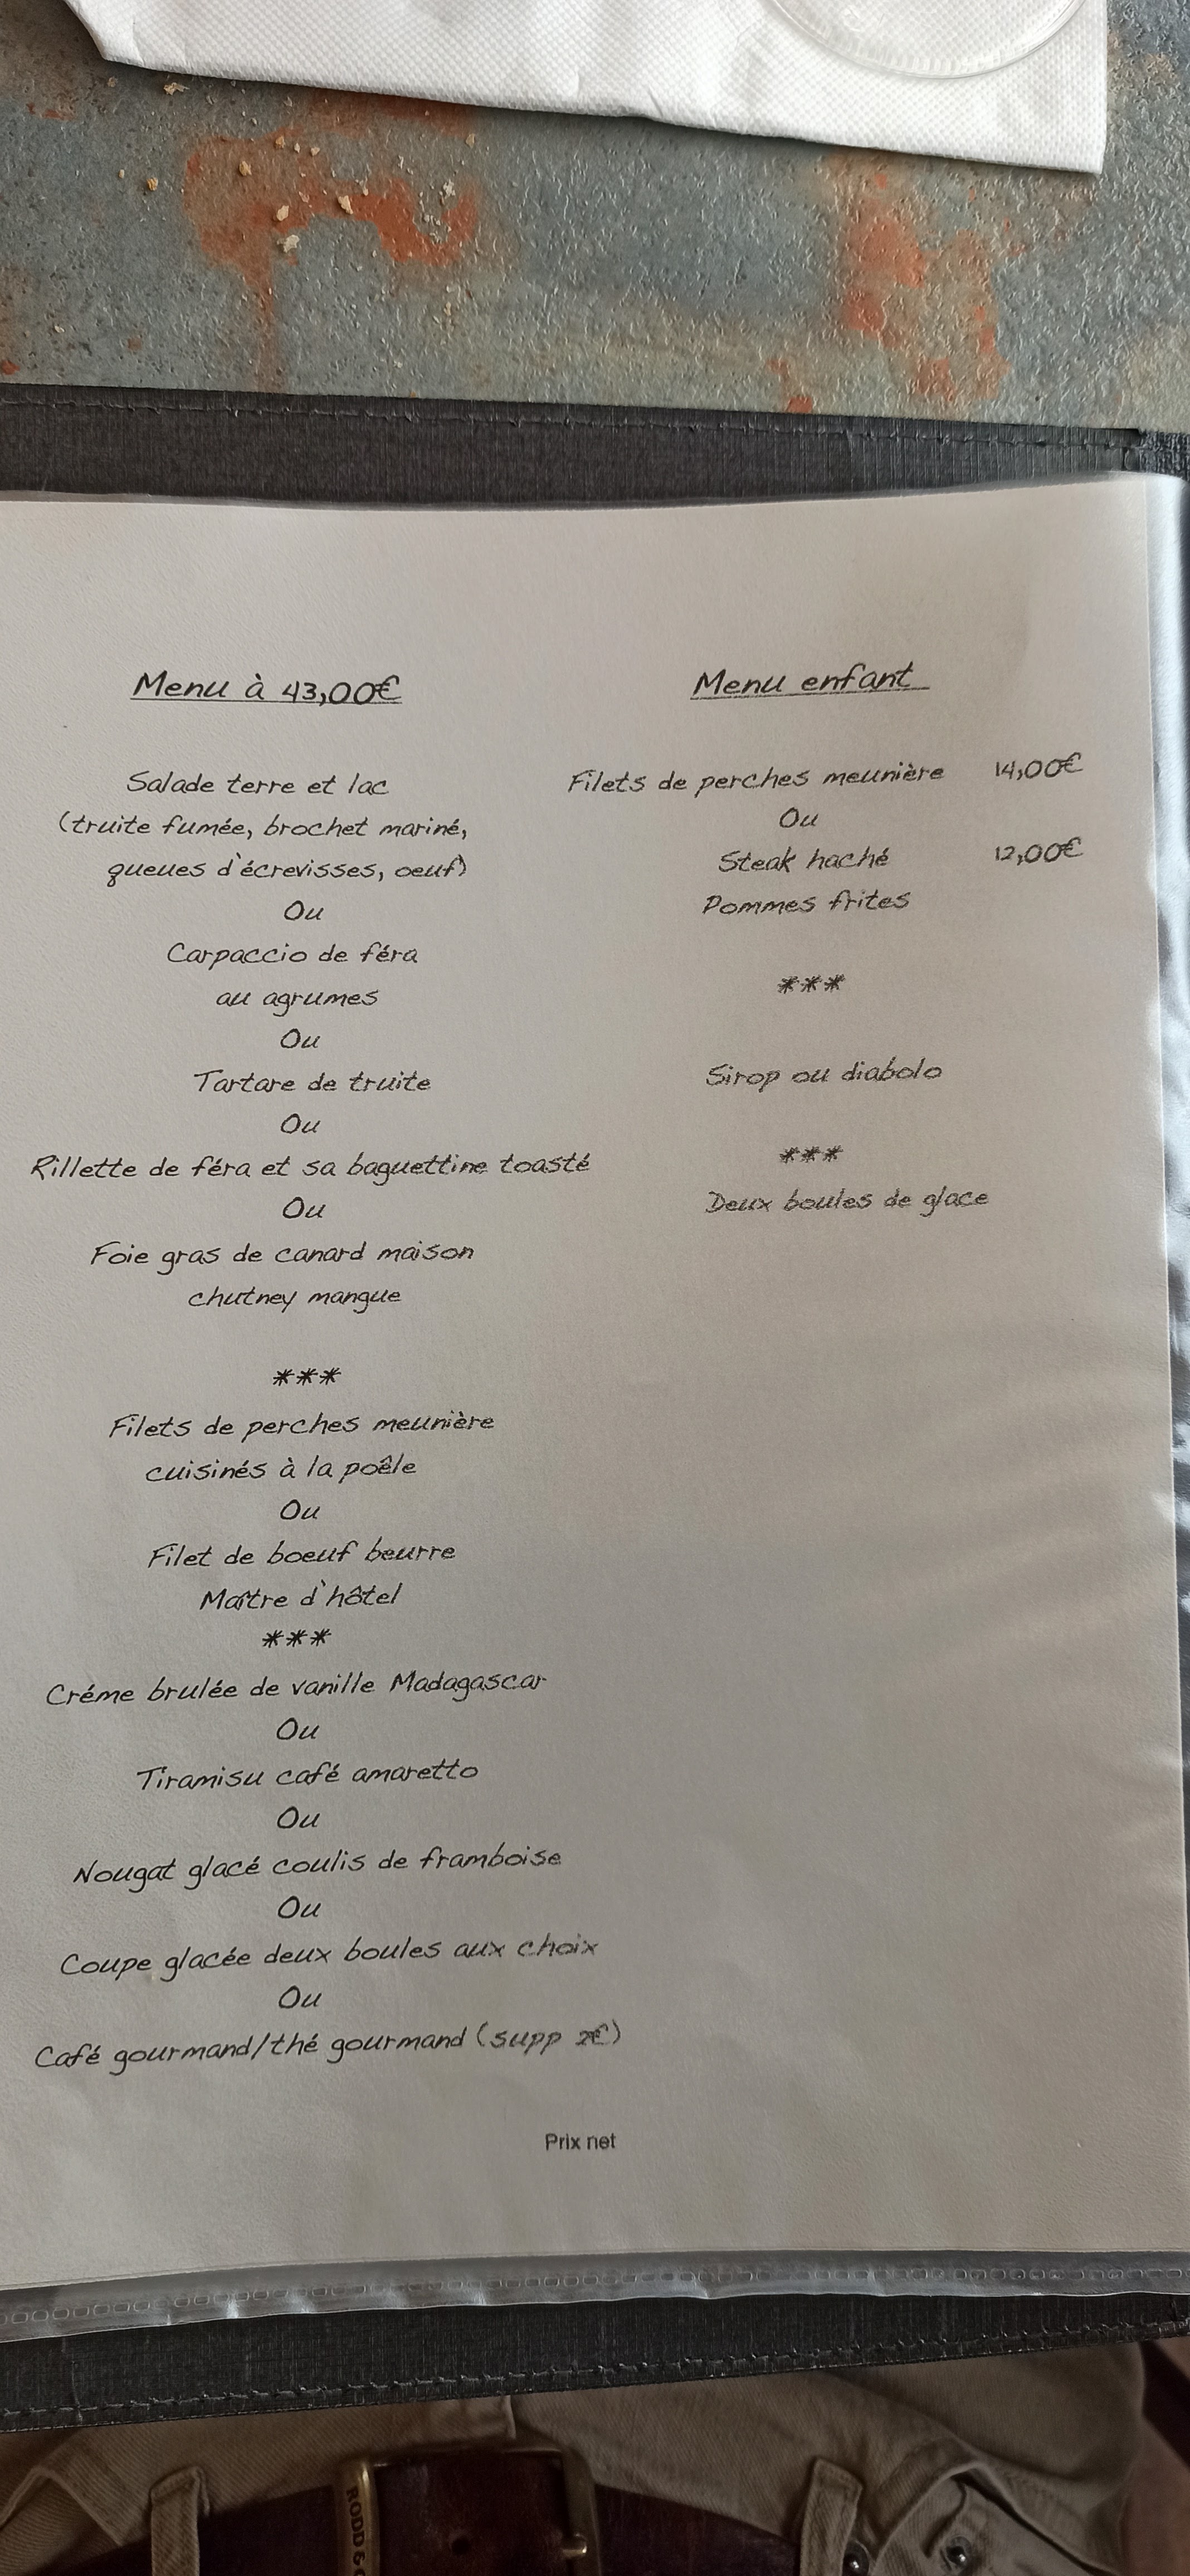 Menu à 43,00€
Salade terre et lac
(truite fumée, brochet mariné,
queues d'écrevisses, oeuf)
Ou
Carpaccio de féra
au agrumes
Ou
Tartare de truite
Ou
Rillette de féra et sa baguettine toasté
Ou
Foie gras de canard maison
chutney mangue
***
Filets de perches meunière
cuisinés à la poêle
Ou
Filet de boeuf beurre
Maître d'hôtel
***
Créme brulée de vanille Madagascar
Ou
Tiramisu café amaretto
Ou
Nougat glacé coulis de framboise
Ou
Coupe glacée deux boules aux choix
Ou
Café gourmand/thé gourmand (supp 2€)
Menu enfant
Filets de perches meunière 14,00€
Ou
Steak haché 12,00€
Pommes frites
***
Sirop ou diabolo
***
Deux boules de glace
Prix net
RODD &